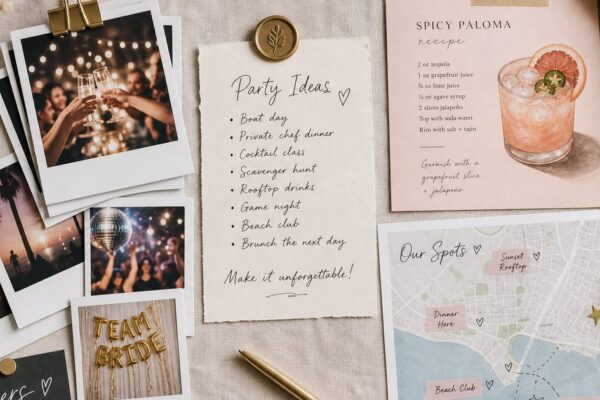 Party Ideas
• Boat day
• Private chef dinner
• Cocktail class
• Scavenger hunt
• Rooftop drinks
• Game night
• Beach club
• Brunch the next day
Make it unforgettable!
SPICY PALOMA
recipe
2 oz tequila
1 oz grapefruit juice
¾ oz lime juice
½ oz agave syrup
2 slices jalapeño
Top with soda water
Rim with salt + tajin
Garnish with a
grapefruit slice
+ jalapeño
Our Spots
Sunset
Rooftop
Dinner
Here
Beach Club
TEAM
BRIDE